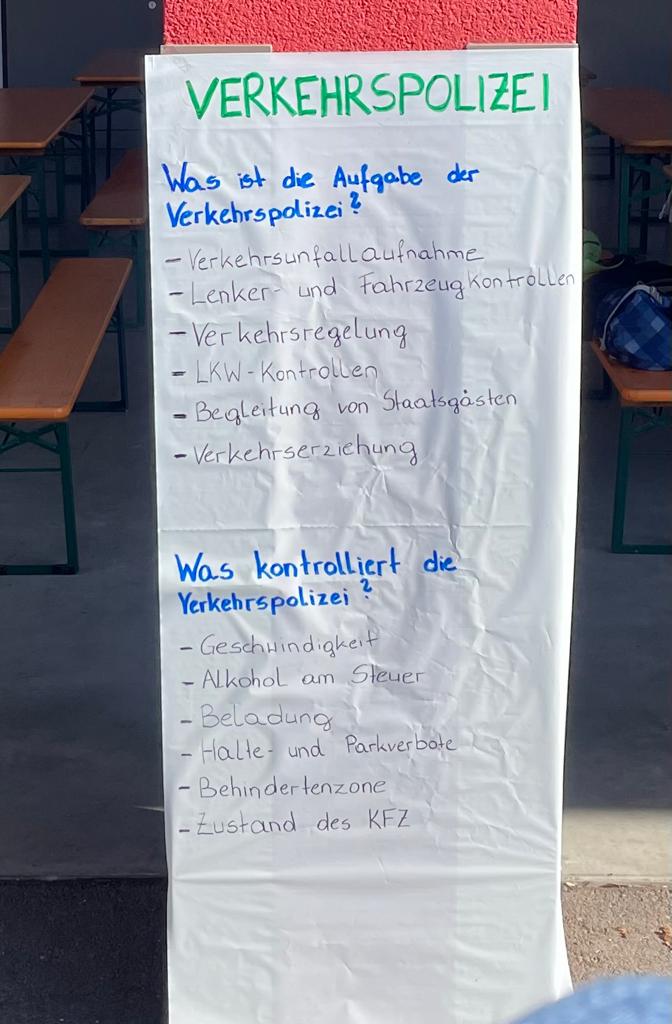 VERKEHRSPOLIZEI
Was ist die Aufgabe der
Verkehrspolizei?
- Verkehrsunfallaufnahme
- Lenker- und Fahrzeugkontrollen
- Verkehrsregelung
- LKW-Kontrollen
- Begleitung von Staatsgästen
- Verkehrserziehung
Was kontrolliert die
Verkehrspolizei?
- Geschwindigkeit
- Alkohol am Steuer
- Beladung
- Halte- und Parkverbote
- Behindertenzone
- Zustand des KFZ